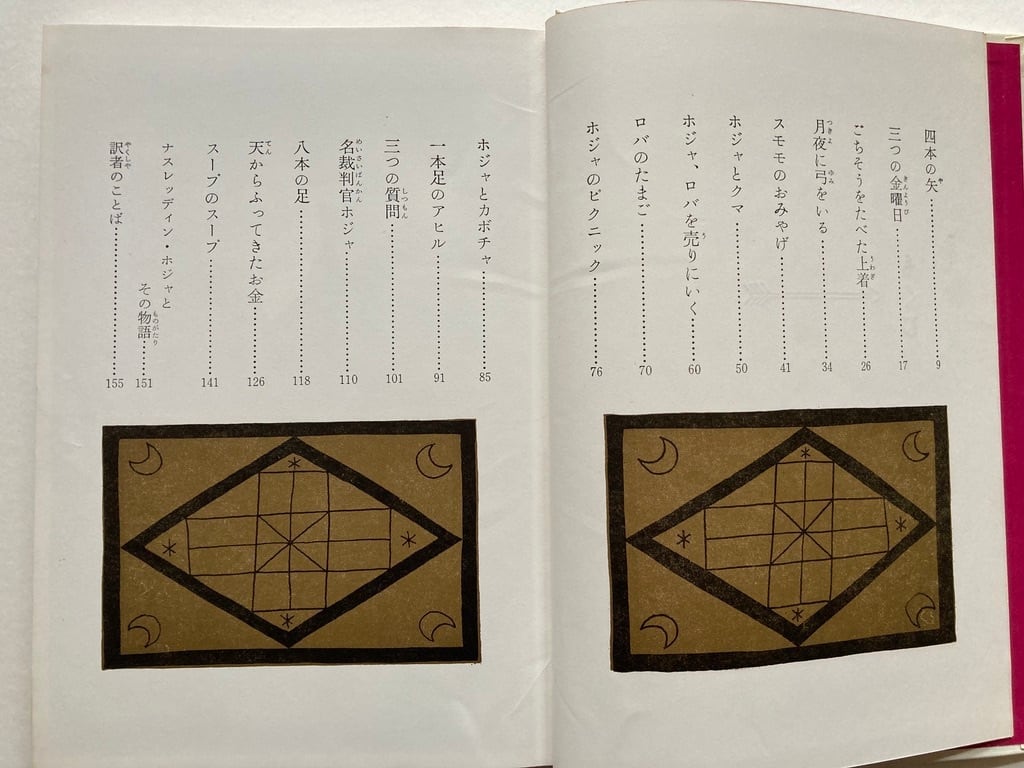 四本の矢……………………9
三つの金曜日……………………17
ごちそうをたべた上着……………………26
月夜に弓をいる……………………34
スモモのおみやげ……………………41
ホジャとクマ……………………50
ホジャ、ロバを売りにいく……………………60
ロバのたまご……………………70
ホジャのピクニック……………………76
ホジャとカボチャ……………………85
一本足のアヒル……………………91
三つの質問……………………101
名裁判官ホジャ……………………110
八本の足……………………118
天からふってきたお金……………………126
スープのスープ……………………141
ナスレッディン・ホジャと
その物語……………………151
訳者のことば……………………155